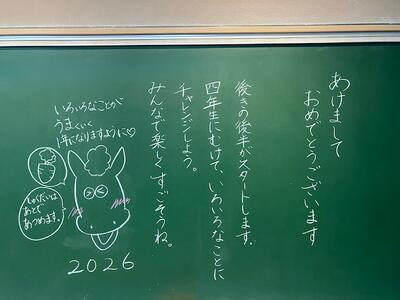 あけまして
おめでとうございます
後きの後半がスタートします。
四年生にむけて、いろいろなことに
チャレンジしよう。
みんなで楽しくすごそうね。
いろいろなことが
うまくいく
1年になりますように♡
しゅくだいは
あとで
あつめます。
2026